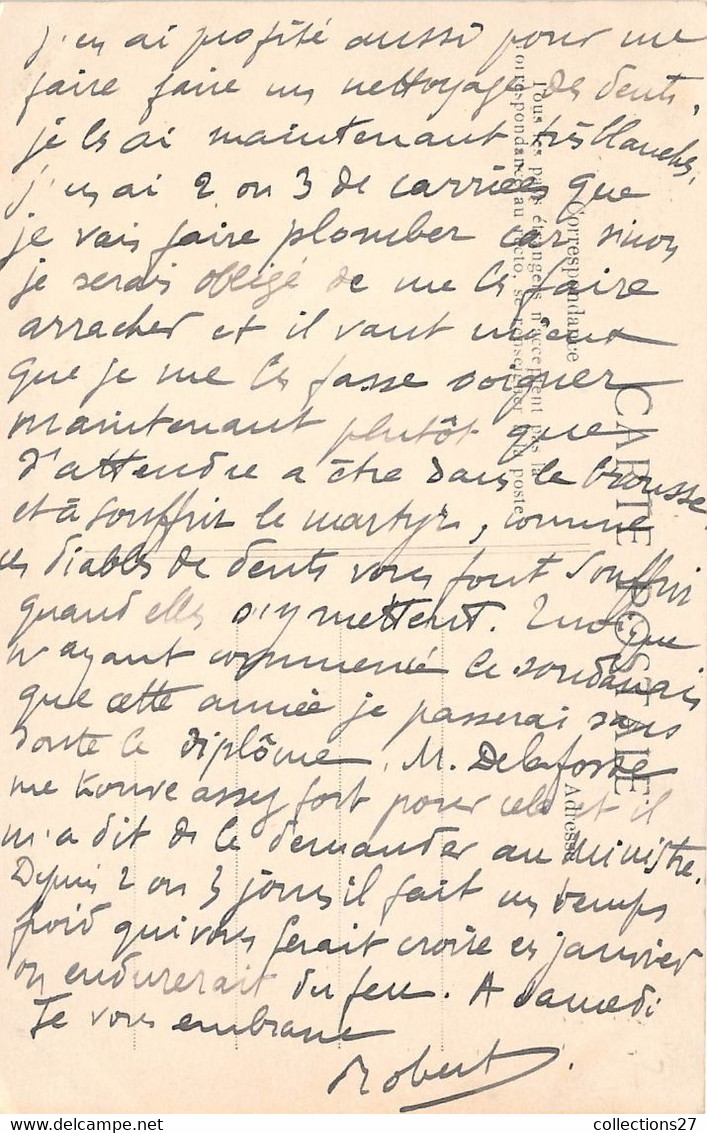 j'en ai profité aussi pour me
faire faire un nettoyage de dents,
je les ai maintenant très blanches,
j'en ai 2 ou 3 de carriées que
je vais faire plomber car sinon
je serais obligé de me les faire
arracher et il vaut mieux
que je me les fasse soigner
maintenant plutôt que
d'attendre a être dans la brousse
et à souffrir le martyr, comme
ces diables de dents vous font souffrir
quand elles s'y mettent. Quoique
n'ayant commencé le soudanais
que cette année je passerai sans
doute le diplôme, M. Delafosse
me trouve assez fort pour cela et il
m'a dit de le demander au Ministre.
Depuis 2 ou 3 jours il fait un temps
froid qui vous ferait croire en janvier
on endurerait du feu. A samedi
Je vous embrasse
Robert.
CARTE POSTALE
Tous les pays étrangers n'acceptent pas la
correspondance au recto, se renseigner à la poste
Correspondance
Adresse
collections27